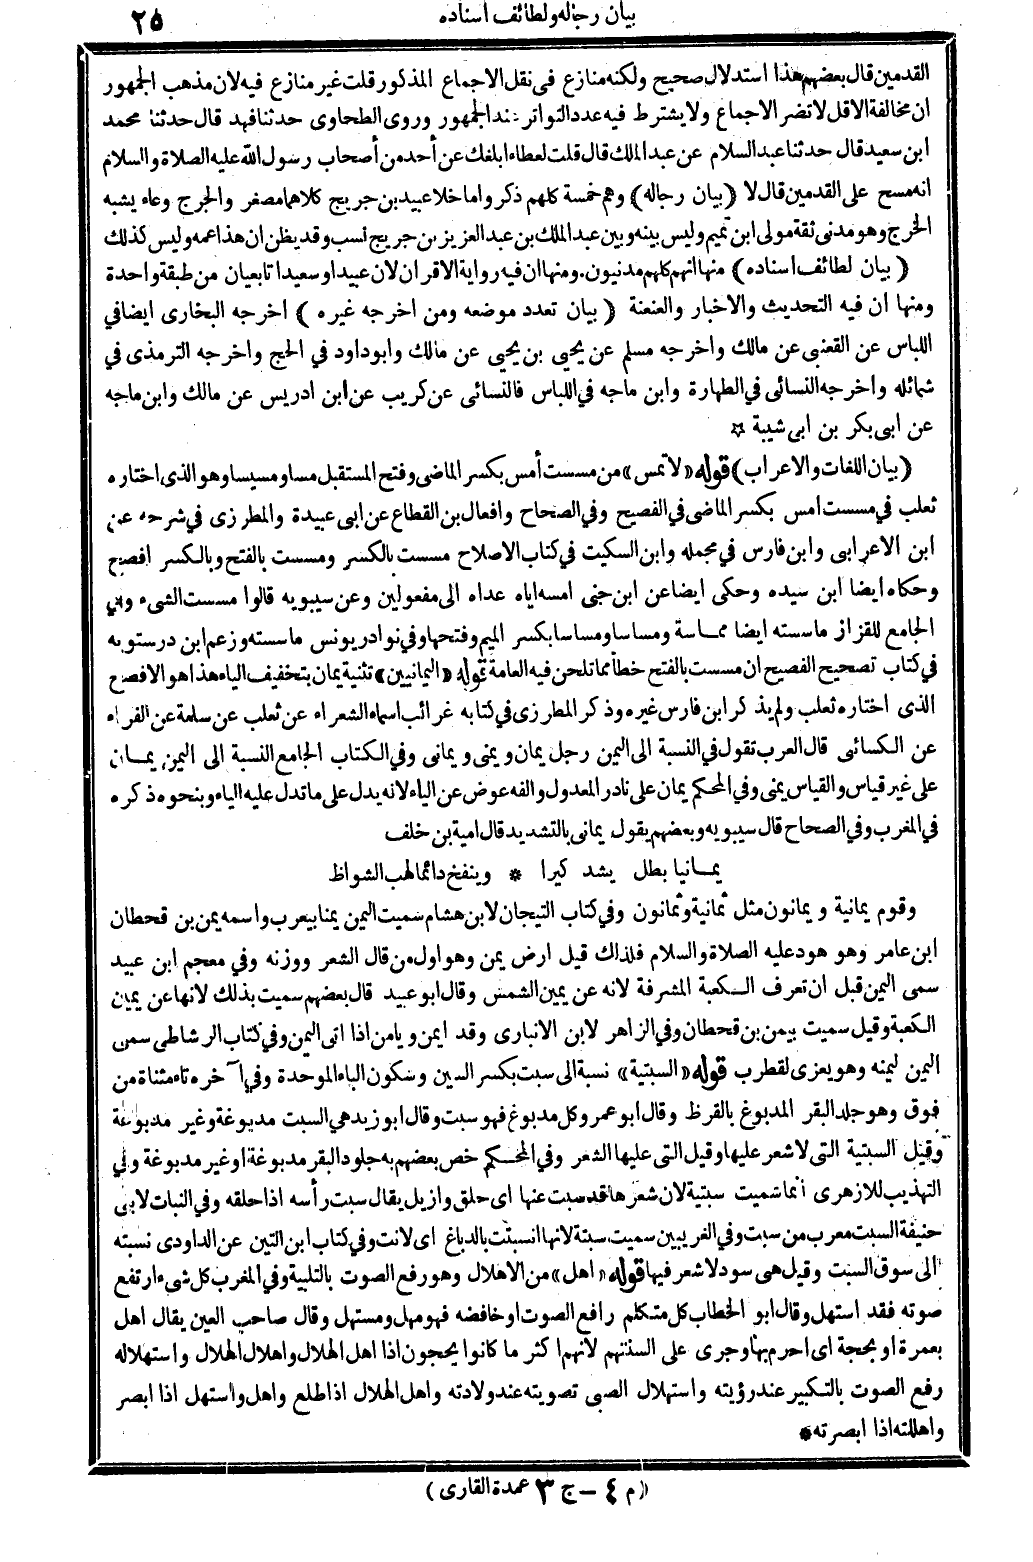 بيان رجاله ولطائف اسناده
٢٥
القدمين قال بعضهم هذا استدلال صحيح ولكنه منازع في نقل الاجماع المذكور قلت غير منازع فيه لان مذهب الجمهور
ان مخالفة الاقل لا تضر الاجماع ولا يشترط فيه عدد التواتر عند الجمهور وروى الطحاوى حدثنا فهد قال حدثنا محمد
ابن سعيد قال حدثنا عبد السلام عن عبد الملك قال قلت لعطاء ابلغك عن أحد من أصحاب رسول الله عليه الصلاة والسلام
انه مسح على القدمين قال لا (بيان رجاله) وهم خمسة كلهم ذكروا ما خلا عبيد بن جريج كلاهما مصغر والجرج وعاء يشبه
الخرج وهو مدنى ثقة مولى ابن تميم وليس بينه وبين عبد الملك بن عبد العزيز بن جريج نسب وقد يظن ان هذا عمه وليس كذلك
(بيان لطائف اسناده) منها انهم كلهم مدنيون. ومنها ان فيه رواية الاقران لان عبيدا وسعيدا تابعيان من طبقة واحدة
ومنها ان فيه التحديث والاخبار والعنعنة (بيان تعدد موضعه ومن اخرجه غيره) اخرجه البخارى ايضا في
اللباس عن القعنبى عن مالك واخرجه مسلم عن يحيى بن يحيى عن مالك وابو داود في الحج واخرجه الترمذى في
شمائله واخرجه النسائى في الطهارة وابن ماجه في اللباس فالنسائى عن كريب عن ابن ادريس عن مالك وابن ماجه
عن ابى بكر بن ابى شيبة ☆
(بيان اللغات والاعراب) قوله «لا تمس» من مسست أمس بكسر الماضى وفتح المستقبل مسا ومسيسا وهو الذى اختاره
ثعلب في مسست امس بكسر الماضى في الفصيح وفي الصحاح وافعال بن القطاع عن ابى عبيدة والمطرزى في شرحه عن
ابن الاعرابى وابن فارس في مجمله وابن السكيت في كتاب الاصلاح مسست بالكسر ومسست بالفتح وبالكسر افصح
وحكاه ايضا ابن سيده وحكى ايضا عن ابن جنى امسه اياه عداه الى مفعولين وعن سيبويه قالوا مسست الشىء وفي
الجامع للقزاز ماسسته ايضا مماسة ومساسا ومساسا بكسر الميم وفتحها وفي نوادر يونس ماسسته وزعم ابن درستويه
في كتاب تصحيح الفصيح ان مسست بالفتح خطأ مما تلحن فيه العامة قوله «اليمانيين» تثنية يمان بتخفيف الياء هذا هو الافصح
الذى اختاره ثعلب ولم يذكر ابن فارس غيره وذكر المطرزى في كتابه غرائب اسماء الشعراء عن ثعلب عن سلمة عن الفراء
عن الكسائى قال العرب تقول في النسبة الى اليمن رجل يمان ويمنى ويمانى وفي الكتاب الجامع النسبة الى اليمن يمان
على غير قياس والقياس يمنى وفي المحكم يمان على نادر المعدول والفه عوض عن الياء لانه يدل على ما تدل عليه الياء وبنحوه ذكره
في المغرب وفي الصحاح قال سيبويه وبعضهم يقول يمانى بالتشديد قال امية بن خلف
يمانيا بطل يشد كيرا * وينفخ دائما لهب الشواظ
وقوم يمانية ويمانون مثل ثمانية وثمانون وفي كتاب التيجان لابن هشام سميت اليمن يمنا بيعرب واسمه يمن بن قحطان
ابن عامر وهو هود عليه الصلاة والسلام فلذلك قيل ارض يمن وهو اول من قال الشعر ووزنه وفي معجم ابن عبيد
سمى اليمن قبل ان تعرف الكعبة المشرفة لانه عن يمين الشمس وقال ابو عبيد قال بعضهم سميت بذلك لانها عن يمين
الكعبة وقيل سميت بيمن بن قحطان وفي الزاهر لابن الانبارى وقد ايمن ويامن اذا اتى اليمن وفي كتاب الرشاطى سمى
اليمن ليمنه وهو يعزى لقطرب قوله «السبتية» نسبة الى سبت بكسر السين وسكون الباء الموحدة وفي آخره تاء مثناة من
فوق وهو جلد البقر المدبوغ بالقرظ وقال ابو عمر وكل مدبوغ فهو سبت وقال ابو زيد هي السبت مدبوغة وغير مدبوغة
وقيل السبتية التى لا شعر عليها وقيل التى عليها الشعر وفي المحكم خص بعضهم به جلود البقر مدبوغة او غير مدبوغة وفي
التهذيب للازهرى انما سميت سبتية لان شعرها قد سبت عنها اى حلق وازيل يقال سبت رأسه اذا حلقه وفي النبات لابى
حنيفة السبت معرب من سبت وفي الغريبين سميت سبتة لانها انسبتت بالدباغ اى لانت وفي كتاب ابن التين عن الداودى نسبته
الى سوق السبت وقيل هى سود لا شعر فيها قوله «اهل» من الاهلال وهو رفع الصوت بالتلبية وفي المغرب كل شىء ارتفع
صوته فقد استهل وقال ابو الخطاب كل متكلم رافع الصوت او خافضه فهو مهل ومستهل وقال صاحب العين يقال اهل
بعمرة او بحجة اى احرم بها وجرى على السنتهم لانهم اكثر ما كانوا يحجون اذا اهل الهلال واهلال الهلال واستهلاله
رفع الصوت بالتكبير عند رؤيته واستهلال الصبى تصويته عند ولادته واهل الهلال اذا طلع واهل واستهل اذا ابصر
واهللته اذا ابصرته *
(م ٤ - ج ٣ عمدة القارى)